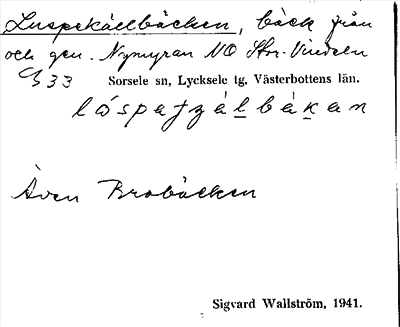 Luspekällbäcken, bäck från
och gen. Nymyran NO Stor-Vindeln
G 33 Sorsele sn, Lycksele tg, Västerbottens län.
Även Brobäcken
Sigvard Wallström, 1941.